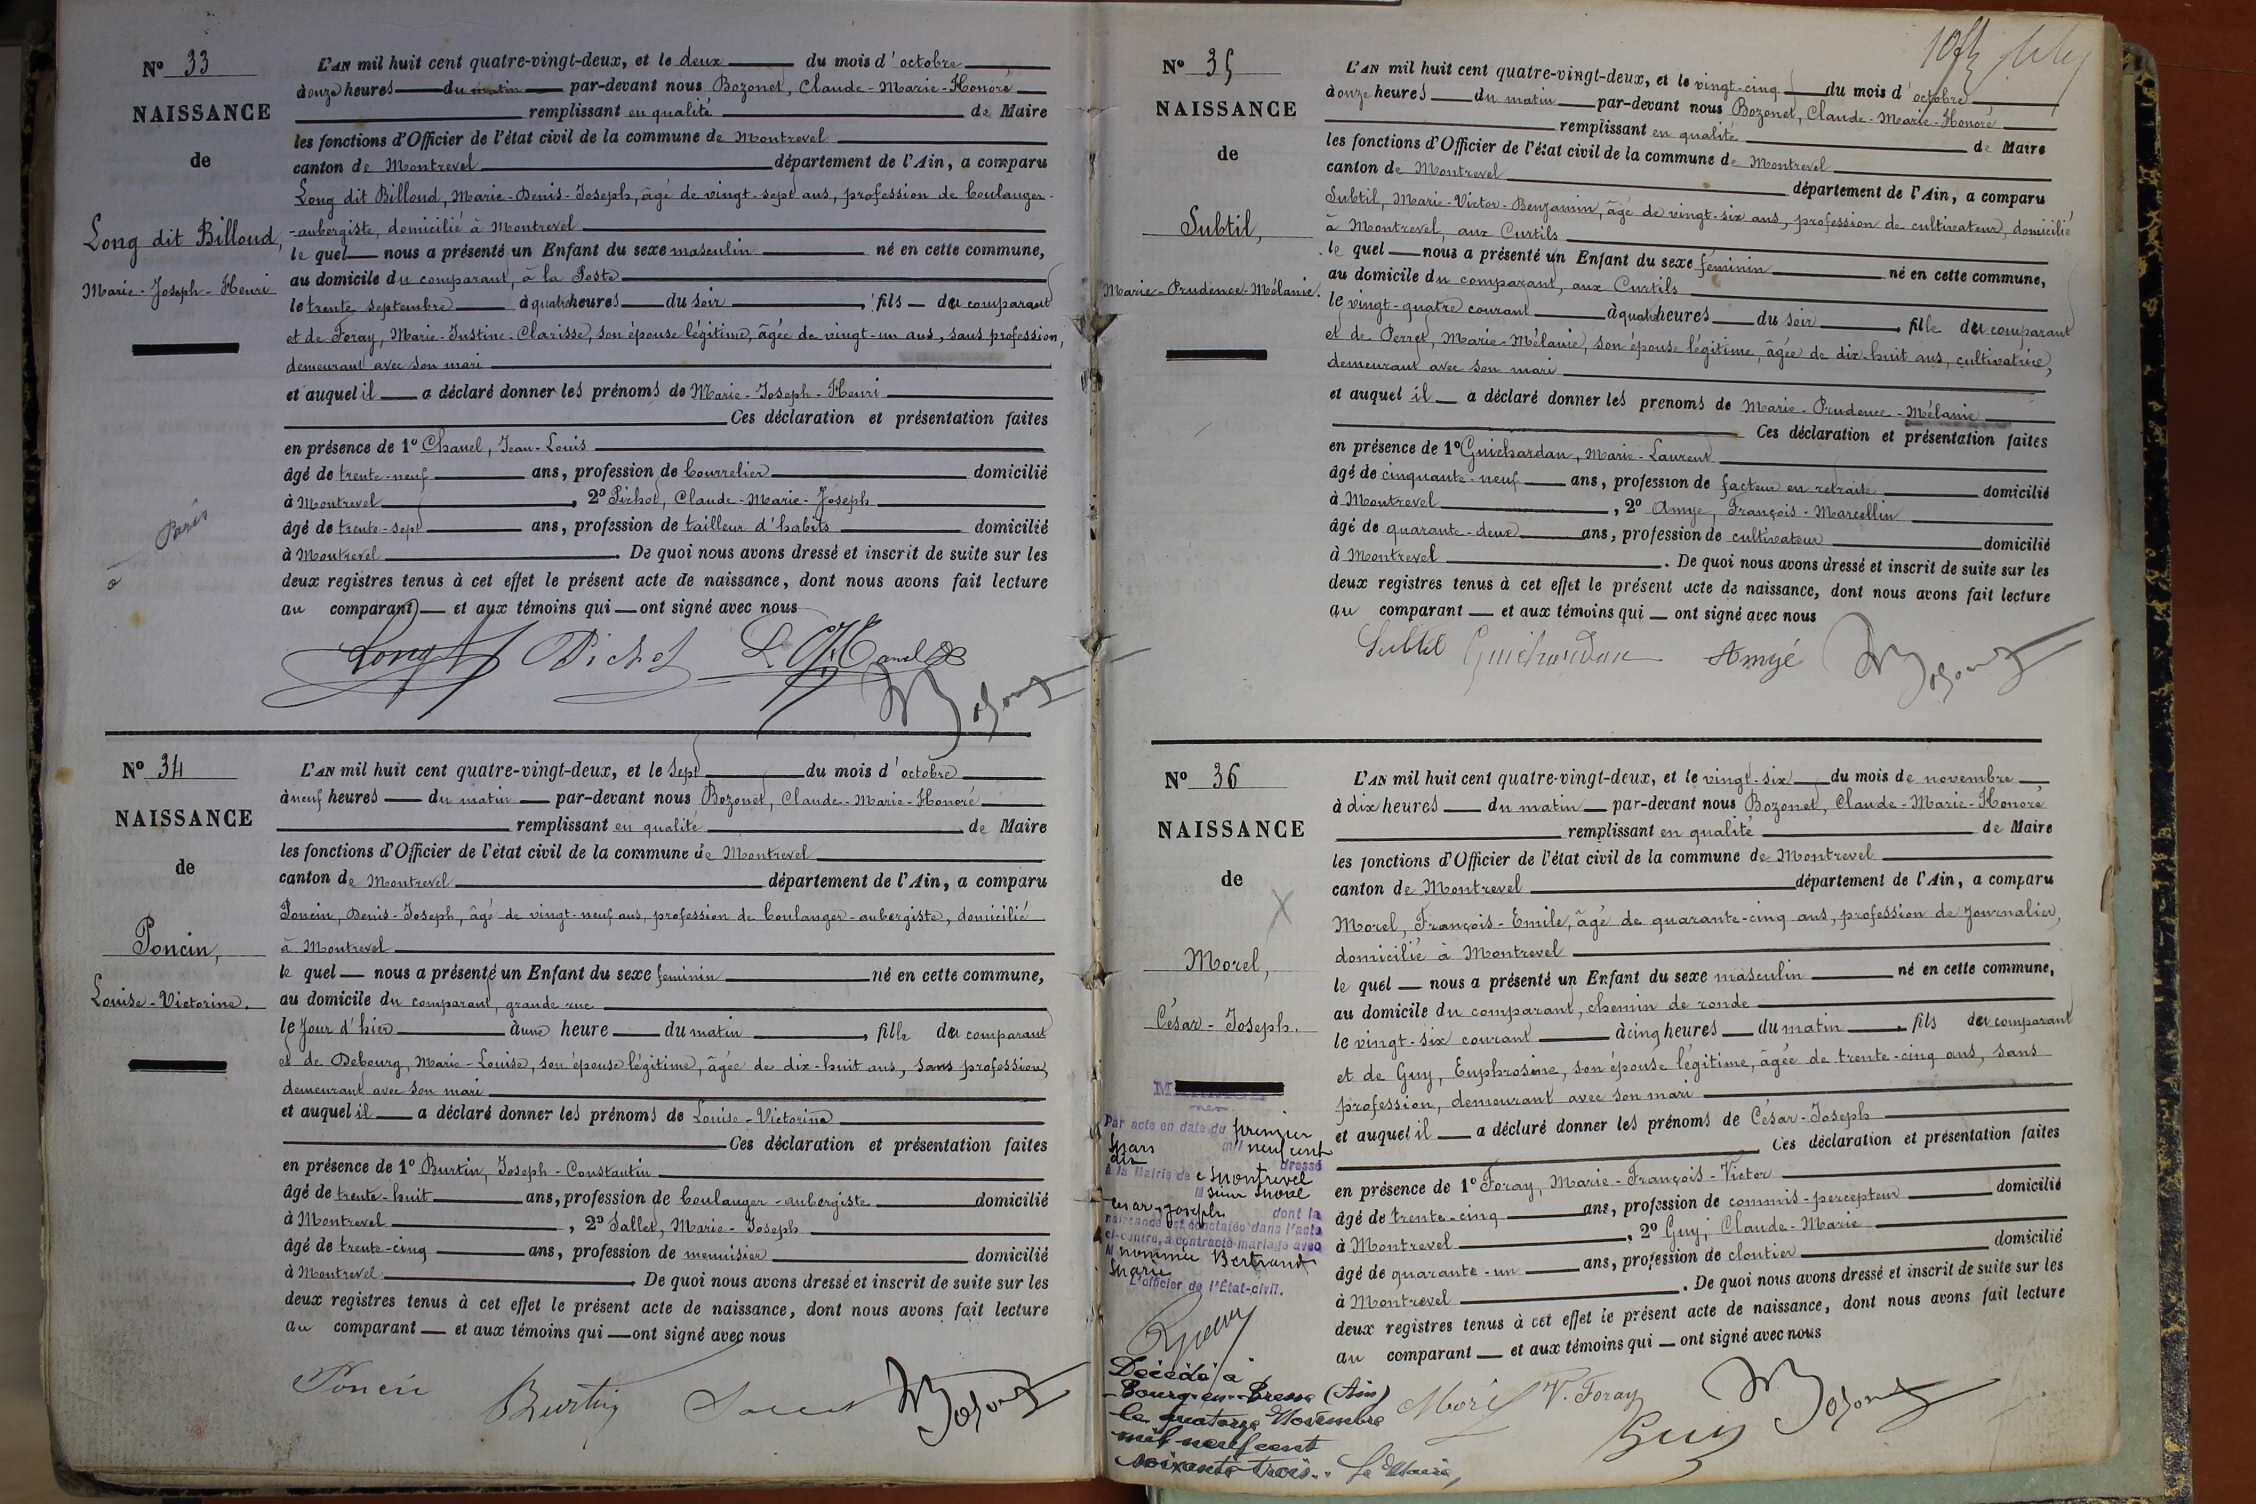 N° 33
NAISSANCE
de
Long dit Billoud,
Marie-Joseph-Henri
à Paris
L'AN mil huit cent quatre-vingt-deux, et le deux du mois d'octobre
à onze heures du matin par-devant nous Bozonet, Claude-Marie-Honoré
remplissant en qualité de Maire
les fonctions d'Officier de l'état civil de la commune de Montrevel
canton de Montrevel département de l'Ain, a comparu
Long dit Billoud, Marie-Denis-Joseph, âgé de vingt-sept ans, profession de boulanger-
-aubergiste, domicilié à Montrevel
le quel nous a présenté un Enfant du sexe masculin né en cette commune,
au domicile du comparant, à la Poste
le trente septembre à quatre heures du soir, fils du comparant
et de Foray, Marie-Justine-Clarisse, son épouse légitime, âgée de vingt-un ans, sans profession,
demeurant avec son mari
et auquel il a déclaré donner les prénoms de Marie-Joseph-Henri
Ces déclaration et présentation faites
en présence de 1° Chanel, Jean-Louis
âgé de trente-neuf ans, profession de bourrelier domicilié
à Montrevel, 2° Pichet, Claude-Marie-Joseph
âgé de trente-sept ans, profession de tailleur d'habits domicilié
à Montrevel. De quoi nous avons dressé et inscrit de suite sur les
deux registres tenus à cet effet le présent acte de naissance, dont nous avons fait lecture
au comparant et aux témoins qui ont signé avec nous
Long Pichet L Chanel Bozonet
N° 34
NAISSANCE
de
Poncin,
Louise-Victorine.
L'AN mil huit cent quatre-vingt-deux, et le sept du mois d'octobre
à neuf heures du matin par-devant nous Bozonet, Claude-Marie-Honoré
remplissant en qualité de Maire
les fonctions d'Officier de l'état civil de la commune de Montrevel
canton de Montrevel département de l'Ain, a comparu
Poncin, Denis-Joseph, âgé de vingt-neuf ans, profession de boulanger-aubergiste, domicilié
à Montrevel
le quel nous a présenté un Enfant du sexe feminin né en cette commune,
au domicile du comparant, grande rue
le jour d'hier à une heure du matin, fille du comparant
et de Debourg, Marie-Louise, son épouse légitime, âgée de dix-huit ans, sans profession,
demeurant avec son mari
et auquel il a déclaré donner les prénoms de Louise-Victorine
Ces déclaration et présentation faites
en présence de 1° Burtin, Joseph-Constantin
âgé de trente-huit ans, profession de boulanger-aubergiste domicilié
à Montrevel, 2° Sallet, Marie-Joseph
âgé de trente-cinq ans, profession de menuisier domicilié
à Montrevel. De quoi nous avons dressé et inscrit de suite sur les
deux registres tenus à cet effet le présent acte de naissance, dont nous avons fait lecture
au comparant et aux témoins qui ont signé avec nous
Poncin Burtin Bozonet
N° 35
NAISSANCE
de
Subtil,
Marie-Prudence-Mélanie.
L'AN mil huit cent quatre-vingt-deux, et le vingt-cinq du mois d'octobre
à onze heures du matin par-devant nous Bozonet, Claude-Marie-Honoré
remplissant en qualité de Maire
les fonctions d'Officier de l'état civil de la commune de Montrevel
canton de Montrevel département de l'Ain, a comparu
Subtil, Marie-Victor-Benjamin, âgé de vingt-six ans, profession de cultivateur, domicilié
à Montrevel, aux Curtils
le quel nous a présenté un Enfant du sexe feminin né en cette commune,
au domicile du comparant, aux Curtils
le vingt-quatre courant à quatre heures du soir, fille du comparant
et de Perret, Marie-Mélanie, son épouse légitime, âgée de dix-huit ans, cultivatrice,
demeurant avec son mari
et auquel il a déclaré donner les prenoms de Marie-Prudence-Mélanie
Ces déclaration et présentation faites
en présence de 1° Guichardan, Marie-Laurent
âgé de cinquante-neuf ans, profession de facteur en retraite domicilié
à Montrevel, 2° Amye, François-Marcellin
âgé de quarante-deux ans, profession de cultivateur domicilié
à Montrevel. De quoi nous avons dressé et inscrit de suite sur les
deux registres tenus à cet effet le présent acte de naissance, dont nous avons fait lecture
au comparant et aux témoins qui ont signé avec nous
Subtil Guichardan Amyé Bozonet
N° 36
NAISSANCE
de
Morel,
César-Joseph.
Par acte en date du premier
Mars mil neuf cent
dix dressé
à la Mairie de Montrevel
M sieur Morel
César-Joseph dont la
naissance est constatée dans l'acte
ci-contre, a contracté mariage avec
M nommée Bertrand
Marie
L'officier de l'Etat-civil.
Décédé à
Bourg-en-Bresse (Ain)
le quatorze Novembre
mil neuf cent
soixante trois. Le Maire,
L'AN mil huit cent quatre-vingt-deux, et le vingt-six du mois de novembre
à dix heures du matin par-devant nous Bozonet, Claude-Marie-Honoré
remplissant en qualité de Maire
les fonctions d'Officier de l'état civil de la commune de Montrevel
canton de Montrevel département de l'Ain, a comparu
Morel, François-Emile, âgé de quarante-cinq ans, profession de Journalier,
domicilié à Montrevel
le quel nous a présenté un Enfant du sexe masculin né en cette commune,
au domicile du comparant, chemin de ronde
le vingt-six courant à cinq heures du matin, fils du comparant
et de Guy, Euphrosine, son épouse légitime, âgée de trente-cinq ans, sans
profession, demeurant avec son mari
et auquel il a déclaré donner les prénoms de César-Joseph
Ces déclaration et présentation faites
en présence de 1° Foray, Marie-François-Victor
âgé de trente-cinq ans, profession de commis-percepteur domicilié
à Montrevel, 2° Guy, Claude-Marie
âgé de quarante-un ans, profession de cloutier domicilié
à Montrevel. De quoi nous avons dressé et inscrit de suite sur les
deux registres tenus à cet effet le présent acte de naissance, dont nous avons fait lecture
au comparant et aux témoins qui ont signé avec nous
Morel V. Foray Guy Bozonet